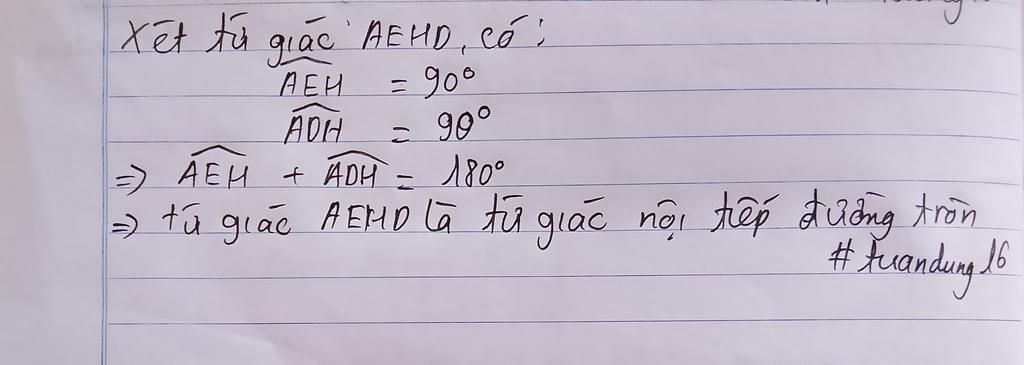 Xét tứ giác AEHD, có;
AEH = 90°
ADH = 90°
=> AEH + ADH = 180°
=> tứ giác AEHD là tứ giác nội tiếp đường tròn
# tuandung16